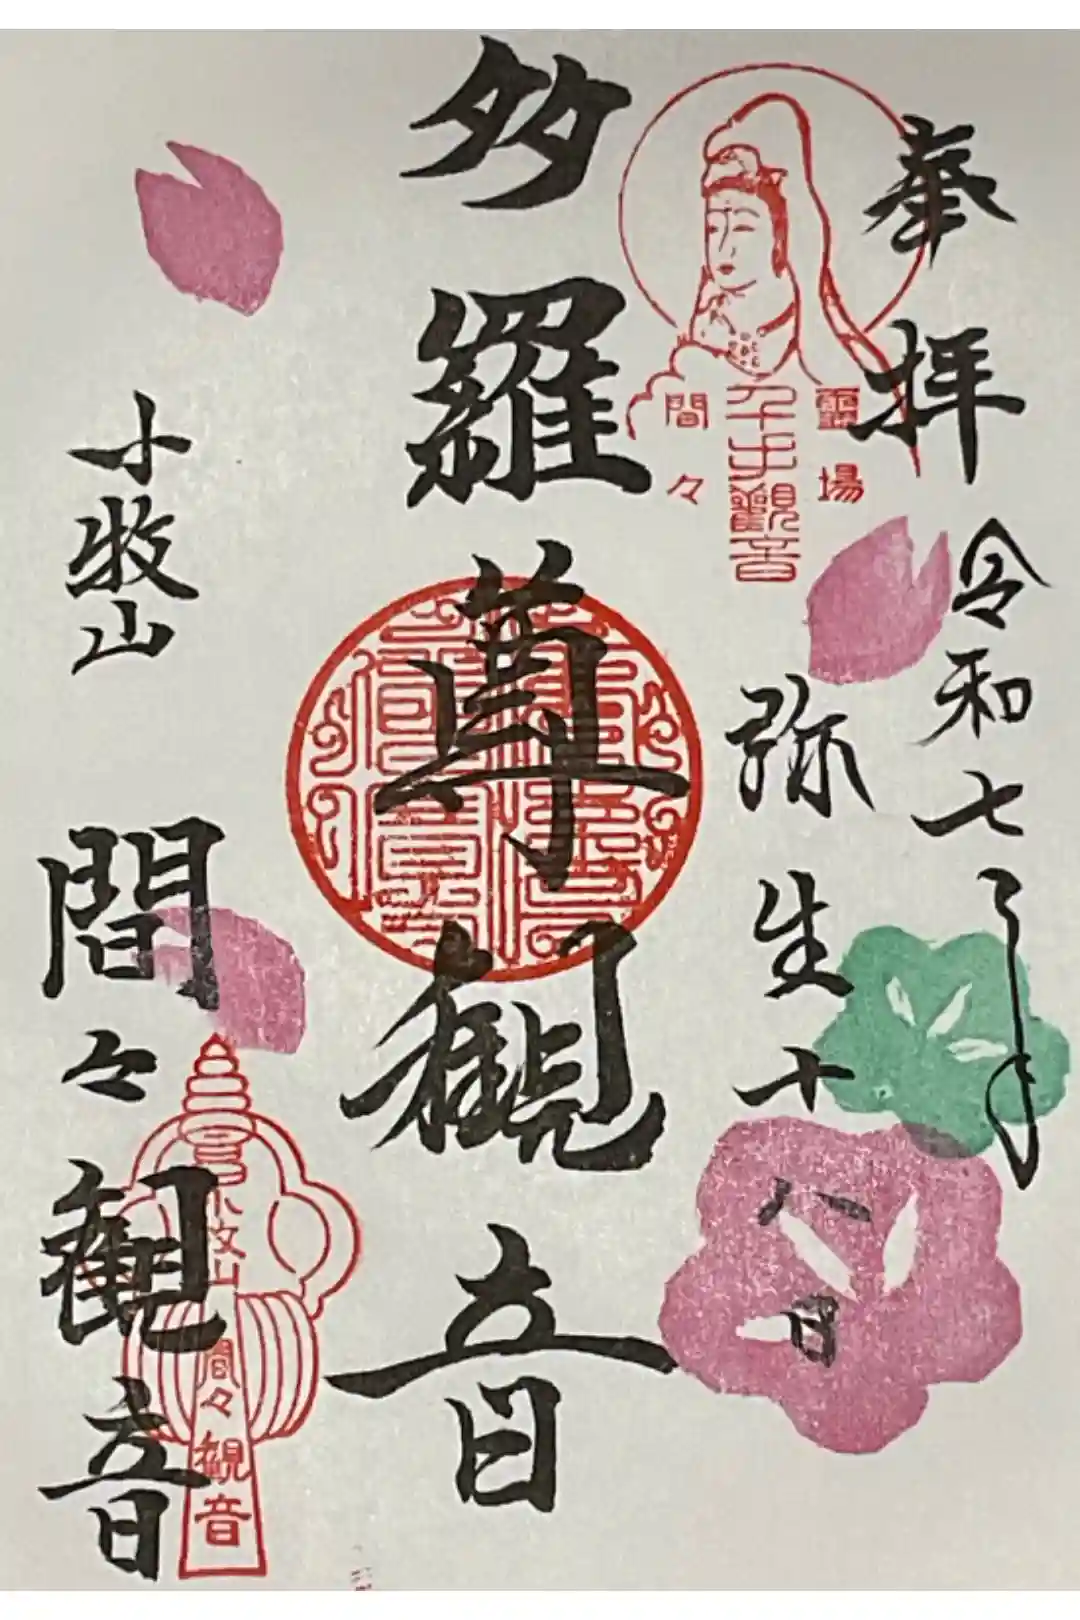 奉拝
令和七年
弥生十八日
霊場
千手観音
間々
多羅尊観音
小牧山
間々観音
小牧山
間々観音